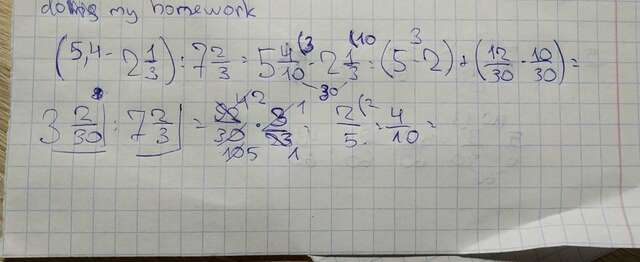 doing my homework
(5,4 - 2 1/3) : 7 2/3 = 5 4/10 (3 - 2 1/3 (10 = (5 - 2) + (12/30 - 10/30) =
30 3
3 2/30 : 7 2/3 = 92/30 · 3/23 = 2/5 (2 = 4/10 =
4 2 1
10 5 1